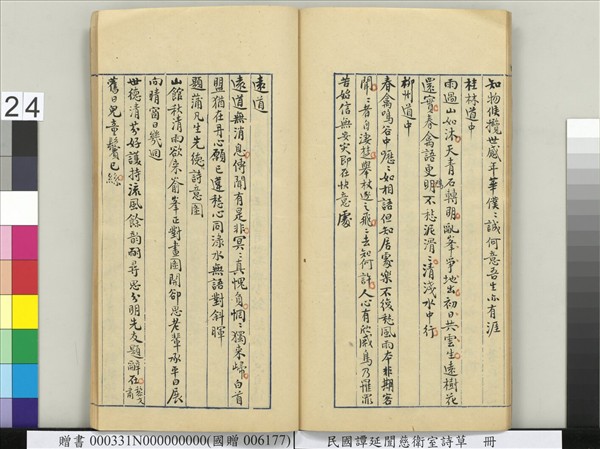 知物候攬世感年華僕〻誠何意吾生亦有涯
桂林道中
雨過山如沐天青石轉明亂峯爭地出初日共雲生遠樹花
還實春禽語更明不愁泥滑〻清淺水中行
柳州道中
春禽鳴谷中歷〻如相語但知居處樂不後愁風雨本非期客
聞〻者自淒楚舉杖逆之飛〻去知何許人心有欣戚鳥乃罹罪
苦好信無安突即在快意處
遠道
遠道無消息傳聞有是非冥〻真愧負惘〻獨來歸白首
盟猶在丹心願已違愁心同淥水無語對斜暉
題蒲凡生先德詩意圖
山館秋清雨欲來峯正對畫圖開卻思老輩承平日展
向晴窗日幾迴
世德清芬好護持流風餘韵耐尋思分明先友題辭在
舊日兒童鬢已絲
24
贈書 000331N000000000(國贈 006177)
民國譚延闓慈衛室詩草 冊